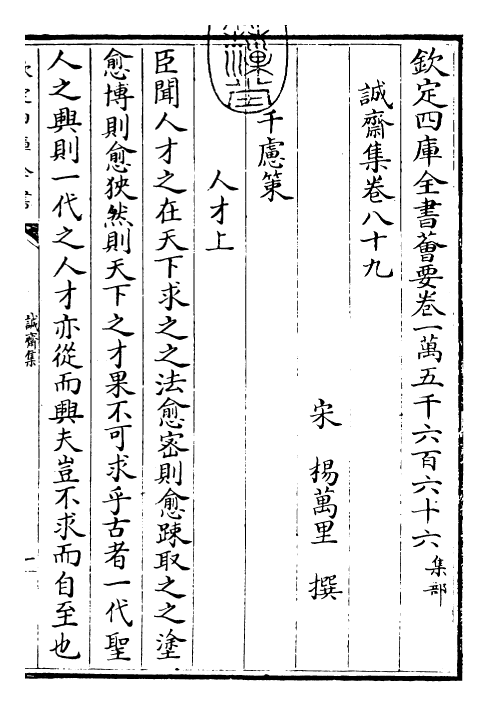 欽定四庫全書薈要卷一萬五千六百六十六集部
誠齋集卷八十九
宋 楊萬里 撰
千慮策
人才上
臣聞人才之在天下求之之法愈密則愈踈取之之塗
愈博則愈狹然則天下之才果不可求乎古者一代聖
人之興則一代之人才亦從而興夫豈不求而自至也
誠齋集